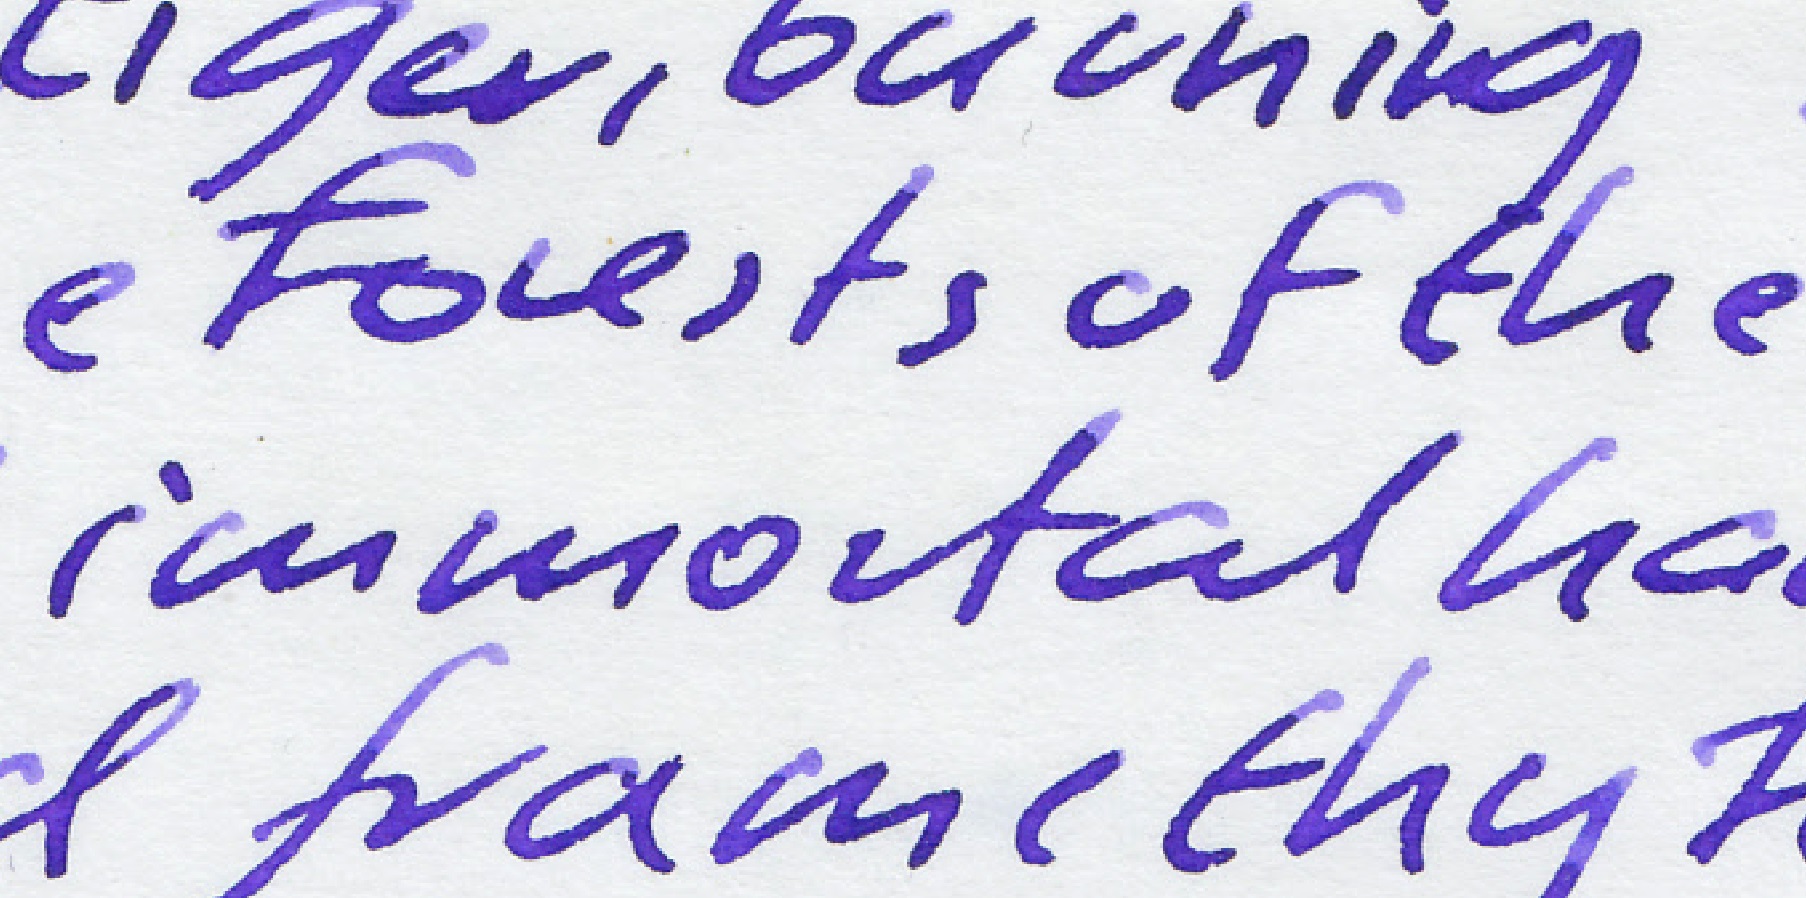 tiger, burning
e Forests of the
immortal ha
l frame thy